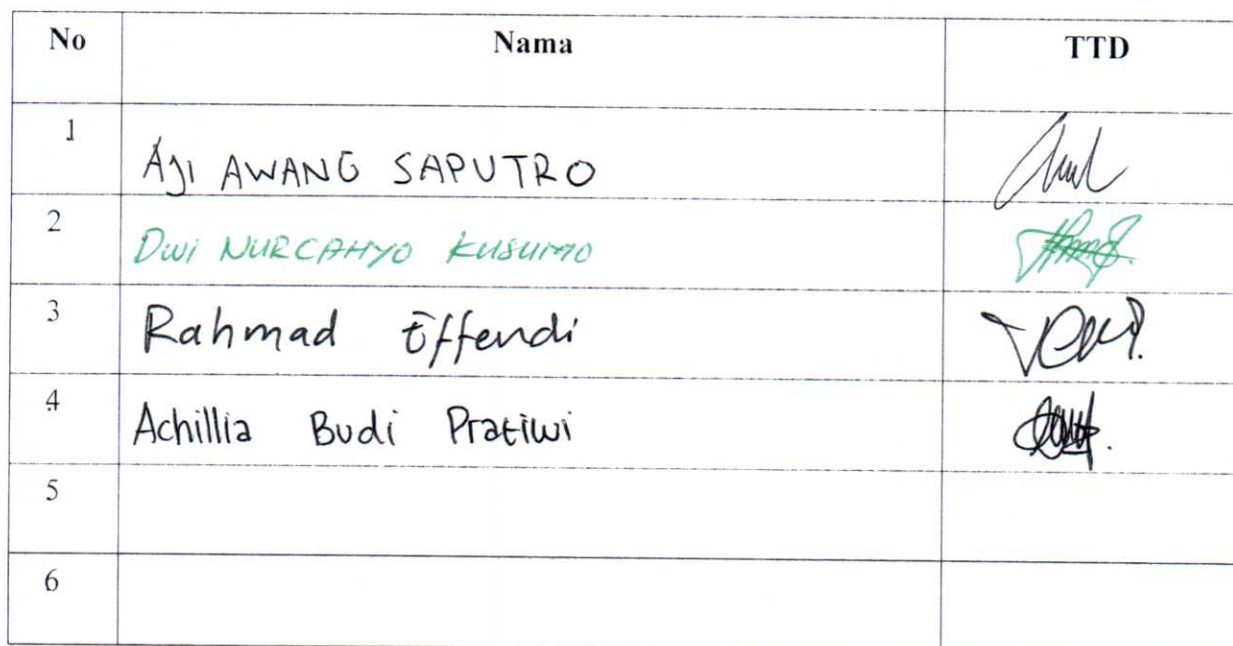 No Nama TTD
1 AJI AWANG SAPUTRO
2 DWI NURCAHYO KUSUMO
3 Rahmad Effendi
4 Achillia Budi Pratiwi
5
6